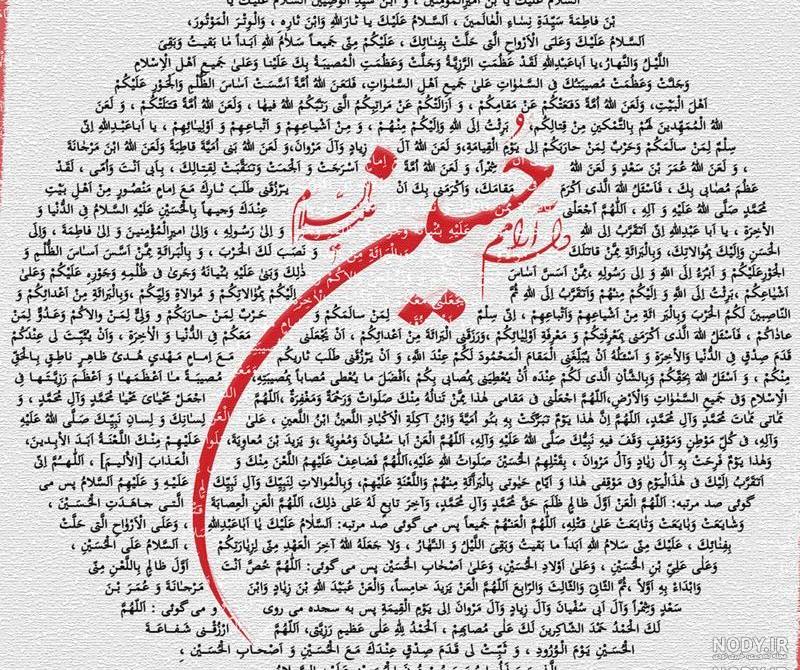 اَلسَّلامُ عَلَیْکَ یَا بْنَ اَمیرِالْمُؤْمِنینَ ، وَ ابْنَ سَیِّدِ الْوَصِیّینَ اَلسَّلامُ عَلَیْکَ یَا
بْنَ فاطِمَةَ سَیِّدَةِ نِساءِ الْعالَمینَ ، اَلسَّلامُ عَلَیْکَ یا ثارَاللهِ وَابْنَ ثارِهِ ، وَالْوِتْرَ الْمَوْتُورَ،
اَلسَّلامُ عَلَیْکَ وَعَلَی الْاَرْواحِ الَّتی حَلَّتْ بِفِنائِکَ ، عَلَیْکُمْ مِنّی جَمیعاً سَلامُ اللهِ اَبَداً ما بَقیتُ وَبَقِیَ
اللَّیْلُ وَالنَّهارُ،یا اَباعَبْدِاللهِ لَقَدْ عَظُمَتِ الرَّزِیَّةُ وَجَلَّتْ وَعَظُمَتِ الْمُصیبَةُ بِکَ عَلَیْنا وَعَلی جَمیعِ اَهْلِ الْاِسْلامِ
وَجَلَّتْ وَعَظُمَتْ مُصیبَتُکَ فِی السَّمواتِ عَلی جَمیعِ اَهْلِ السَّمواتِ، فَلَعَنَ اللهُ اُمَّةً اَسَّسَتْ اَساسَ الظُّلْمِ وَالْجَوْرِ عَلَیْکُمْ
اَهْلَ الْبَیْتِ، وَلَعَنَ اللهُ اُمَّةً دَفَعَتْکُمْ عَنْ مَقامِکُمْ ، وَ اَزالَتْکُمْ عَنْ مَراتِبِکُمُ الَّتی رَتَّبَکُمُ اللهُ فیها ، وَ لَعَنَ اللهُ اُمَّةً قَتَلَتْکُمْ ، وَ لَعَنَ
اللهُ الْمُمَهِّدینَ لَهُمْ بِالتَّمْکینِ مِنْ قِتالِکُمْ، بَرِئْتُ اِلَی اللهِ وَاِلَیْکُمْ مِنْهُمْ ، وَ مِنْ اَشْیاعِهِمْ وَ اَتْباعِهِمْ وَ اَوْلِیائِهِمْ ، یا اَباعَبْدِاللهِ اِنّی
سِلْمٌ لِمَنْ سالَمَکُمْ وَحَرْبٌ لِمَنْ حارَبَکُمْ اِلی یَوْمِ الْقِیامَةِ،وَ لَعَنَ اللهُ آلَ زِیادٍ وَآلَ مَرْوانَ،وَ لَعَنَ اللهُ بَنی اُمَیَّةَ قاطِبَةً وَلَعَنَ اللهُ ابْنَ مَرْجانَةَ
، وَ لَعَنَ اللهُ عُمَرَ بْنَ سَعْدٍ وَ لَعَنَ اللهُ شِمْراً، وَ لَعَنَ اللهُ اُمَّةً اَسْرَجَتْ وَ اَلْجَمَتْ وَتَنَقَّبَتْ لِقِتالِکَ ، بِاَبی اَنْتَ وَاُمّی ، لَقَدْ
عَظُمَ مُصابی بِکَ ، فَاَسْئَلُ اللهَ الَّذی اَکْرَمَ مَقامَکَ، وَاَکْرَمَنی بِکَ اَنْ یَرْزُقَنی طَلَبَ ثارِکَ مَعَ اِمامٍ مَنْصُورٍ مِنْ اَهْلِ بَیْتِ
مُحَمَّدٍ صَلَّی اللهُ عَلَیْهِ وَ آلِهِ ، اَللّهُمَّ اجْعَلْنی عِنْدَکَ وَجیهاً بِالْحُسَیْنِ عَلَیْهِ السَّلامُ فِی الدُّنْیا وَ
الْآخِرَةِ ، یا اَبا عَبْدِاللهِ اِنّی اَتَقَرَّبُ اِلَی اللهِ وَ اِلی رَسُولِهِ ، وَاِلی اَمیرِالْمُؤْمِنینَ وَ اِلی فاطِمَةَ ، وَاِلَی
الْحَسَنِ وَاِلَیْکَ بِمُوالاتِکَ، وَبِالْبَرائَةِ مِمَّنْ قاتَلَکَ وَ نَصَبَ لَکَ الْحَرْبَ ، وَ بِالْبَرائَةِ مِمَّنْ اَسَّسَ اَساسَ الظُّلْمِ وَ
الْجَوْرِعَلَیْکُمْ وَ اَبْرَءُ اِلَی اللهِ وَ اِلی رَسُولِهِ ،مِمَّنْ اَسَسَّ اَساسَ ذلِکَ وَبَنی عَلَیْهِ بُنْیانَهُ وَجَری فی ظُلْمِهِ وَجَوْرِهِ عَلَیْکُمْ وَعَلی
اَشْیاعِکُمْ ،بَرِئْتُ اِلَی اللهِ وَ اِلَیْکُمْ مِنْهُمْ وَاَتَقَرَّبُ اِلَی اللهِ ثُمَّ اِلَیْکُمْ بِمُوالاتِکُمْ وَ مُوالاةِ وَلِیِّکُمْ ،وَبِالْبَرائَةِ مِنْ اَعْدائِکُمْ وَ
النّاصِبینَ لَکُمُ الْحَرْبَ وَبِالْبَرائَةِ مِنْ اَشْیاعِهِمْ وَاَتْباعِهِمْ ، اِنّی سِلْمٌ لِمَنْ سالَمَکُمْ وَ حَرْبٌ لِمَنْ حارَبَکُمْ وَ وَلِیٌّ لِمَنْ والاکُمْ وَعَدُوٌّ لِمَنْ
عاداکُمْ ، فَاَسْئَلُ اللهَ الَّذی اَکْرَمَنی بِمَعْرِفَتِکُمْ وَ مَعْرِفَةِ اَوْلِیائِکُمْ ،وَرَزَقَنِی الْبَرائَةَ مِنْ اَعْدائِکُمْ ، اَنْ یَجْعَلَنی مَعَکُمْ فِی الدُّنْیا وَ الْآخِرَةِ ، وَاَنْ یُثَبِّتَ لی عِنْدَکُمْ
قَدَمَ صِدْقٍ فِی الدُّنْیا وَالْآخِرَةِ وَ اَسْئَلُهُ اَنْ یُبَلِّغَنِی الْمَقامَ الْمَحْمُودَ لَکُمْ عِنْدَ اللهِ، وَ اَنْ یَرْزُقَنی طَلَبَ ثارِیکُمْ مَعَ اِمامٍ مَهْدِیٍّ هُدیً ظاهِرٍ ناطِقٍ بِالْحَقِّ
مِنْکُمْ ، وَ اَسْئَلُ اللهَ بِحَقِّکُمْ وَبِالشَّأْنِ الَّذی لَکُمْ عِنْدَهُ اَنْ یُعْطِیَنی بِمُصابی بِکُمْ ،اَفْضَلَ ما یُعْطی مُصاباً بِمُصیبَتِهِ، مُصیبَةً ما اَعْظَمَها وَ اَعْظَمَ رَزِیَّتَها فِی
الْاِسْلامِ وَفی جَمیعِ السَّمواتِ وَالْاَرْضِ،اَللّهُمَّ اجْعَلْنی فی مَقامی هذا مِمَّنْ تَنالُهُ مِنْکَ صَلَواتٌ وَرَحْمَةٌ وَمَغْفِرَةٌ ،اَللّهُمَّ اجْعَلْ مَحْیایَ مَحْیا مُحَمَّدٍ وَآلِ مُحَمَّدٍ ، وَ
مَماتی مَماتَ مُحَمَّدٍ وَآلِ مُحَمَّدٍ، اَللّهُمَّ اِنَّ هذا یَوْمٌ تَبَرَّکَتْ بِهِ بَنُو اُمَیَّةَ وَابْنُ آکِلَةِ الْاَکْبادِ اللَّعینُ ابْنُ اللَّعینِ ، عَلی لِسانِکَ وَ لِسانِ نَبِیِّکَ صَلَّی اللهُ عَلَیْهِ
وَآلِهِ، فی کُلِّ مَوْطِنٍ وَمَوْقِفٍ وَقَفَ فیهِ نَبِیُّکَ صَلَّی اللهُ عَلَیْهِ وَآلِهِ، اَللّهُمَّ الْعَنْ اَبا سُفْیانَ وَمُعاوِیَةَ ،وَ یَزیدَ بْنَ مُعاوِیَةَ، عَلَیْهِمْ مِنْکَ اللَّعْنَةُ اَبَدَ الْآبِدینَ،
وَهذا یَوْمٌ فَرِحَتْ بِهِ آلُ زِیادٍ وَآلُ مَرْوانَ ، بِقَتْلِهِمُ الْحُسَیْنَ صَلَواتُ اللهِ عَلَیْهِ،اَللّهُمَّ فَضاعِفْ عَلَیْهِمُ اللَّعْنَ مِنْکَ وَ الْعَذابَ [الْاَلیمَ] ، اَللّهُمَّ اِنّی
اَتَقَرَّبُ اِلَیْکَ فی هذَاالْیَوْمِ وَفی مَوْقِفی هذا وَ اَیّامِ حَیوتی بِالْبَرائَةِ مِنْهُمْ وَاللَّعْنَةِ عَلَیْهِمْ، وَبِالْمُوالاتِ لِنَبِیِّکَ وَآلِ نَبِیِّکَ عَلَیْهِ وَ عَلَیْهِمُ اَلسَّلامُ پس می
گوئی صد مرتبه: اَللّهُمَّ الْعَنْ اَوَّلَ ظالِمٍ ظَلَمَ حَقَّ مُحَمَّدٍ وَآلِ مُحَمَّدٍ، وَآخِرَ تابِعٍ لَهُ عَلی ذلِکَ، اَللّهُمَّ الْعَنِ الْعِصابَةَ الَّتی جاهَدَتِ الْحُسَیْنَ ،
وَشایَعَتْ وَبایَعَتْ وَتابَعَتْ عَلی قَتْلِهِ، اَللّهُمَّ الْعَنْهُمْ جَمیعاً پس می گوئی صد مرتبه: اَلسَّلامُ عَلَیْکَ یا اَباعَبْدِاللهِ ، وَعَلَی الْاَرْواحِ الَّتی حَلَّتْ
بِفِنائِکَ ، عَلَیْکَ مِنّی سَلامُ اللهِ اَبَداً ما بَقیتُ وَبَقِیَ اللَّیْلُ وَ النَّهارُ ، وَلا جَعَلَهُ اللهُ آخِرَ الْعَهْدِ مِنّی لِزِیارَتِکُمْ ، اَلسَّلامُ عَلَی الْحُسَیْنِ ،
وَعَلی عَلِیِّ بْنِ الْحُسَیْنِ، وَعَلی اَوْلادِ الْحُسَیْنِ، وَعَلی اَصْحابِ الْحُسَیْنِ پس می گوئی: اَللّهُمَّ خُصَّ اَنْتَ اَوَّلَ ظالِمٍ بِاللَّعْنِ مِنّی
وَابْدَاءْ بِهِ اَوَّلاً ،ثُمَّ الثّانِیَ وَالثّالِثَ وَالرّابِعَ اَللّهُمَّ الْعَنْ یَزیدَ خامِساً، وَالْعَنْ عُبَیْدَ اللهِ بْنَ زِیادٍ وَابْنَ مَرْجانَةَ وَ عُمَرَ بْنَ
سَعْدٍ وَشِمْراً وَآلَ اَبی سُفْیانَ وَآلَ زِیادٍ وَآلَ مَرْوانَ اِلی یَوْمِ الْقِیمَةِ پس به سجده می روی و می گوئی : اَللّهُمَّ
لَکَ الْحَمْدُ حَمْدَ الشّاکِرینَ لَکَ عَلی مُصابِهِمْ ، اَلْحَمْدُ لِلّهِ عَلی عَظیمِ رَزِیَّتی، اَللّهُمَّ ارْزُقْنی شَفاعَةَ
الْحُسَیْنِ یَوْمَ الْوُرُودِ ، وَ ثَبِّتْ لی قَدَمَ صِدْقٍ عِنْدَکَ مَعَ الْحُسَیْنِ وَ اَصْحابِ الْحُسَیْنِ ،
حسین
علیه السلام
دارم آرامم
NODY.IR